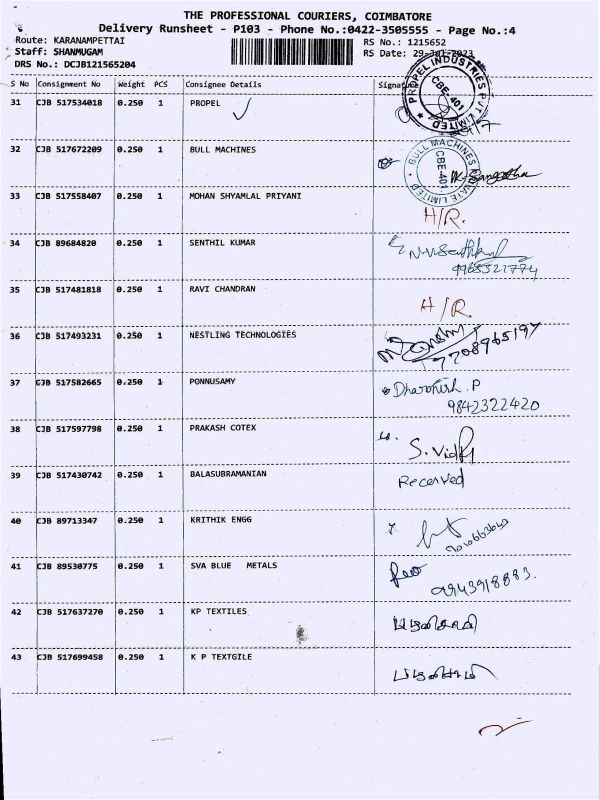 THE PROFESSIONAL COURIERS, COIMBATORE
Delivery Runsheet - P103 - Phone No.:0422-3505555 - Page No.:4
Route: KARANAMPETTAI
RS No.: 1215652
Staff: SHANMUGAM
RS Date: 29-Jul-2023
DRS No.: DCJB121565204
S No Consignment No Weight PCS Consignee Details Signature
PROPEL INDUSTRIES PVT LIMITED
CBE-401
31 CJB 517534018 0.250 1 PROPEL
32 CJB 517672209 0.250 1 BULL MACHINES
BULL MACHINES PRIVATE LIMITED
CBE-401
33 CJB 517558407 0.250 1 MOHAN SHYAMLAL PRIYANI H/R.
34 CJB 89684820 0.250 1 SENTHIL KUMAR
35 CJB 517481818 0.250 1 RAVI CHANDRAN H/R.
36 CJB 517493231 0.250 1 NESTLING TECHNOLOGIES
37 CJB 517582665 0.250 1 PONNUSAMY
9842322420
38 CJB 517597798 0.250 1 PRAKASH COTEX S. Vidhi
39 CJB 517430742 0.250 1 BALASUBRAMANIAN Received
40 CJB 89713347 0.250 1 KRITHIK ENGG
41 CJB 89530775 0.250 1 SVA BLUE METALS
0943918883.
42 CJB 517637270 0.250 1 KP TEXTILES
43 CJB 517699458 0.250 1 K P TEXTGILE